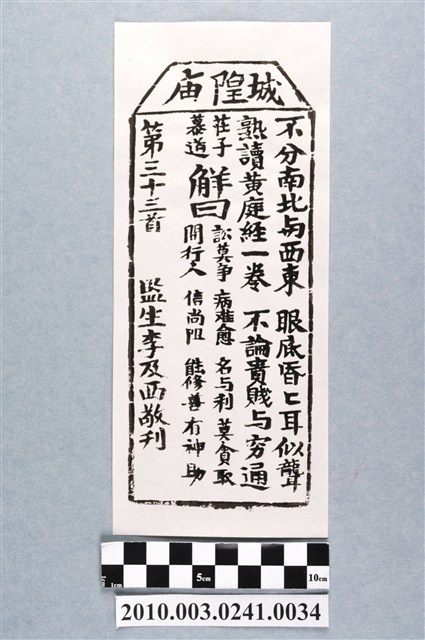 城隍庙
不分南北与西東 眼底昏匕耳似聾
熟讀黄庭経一卷 不論貴賤与穷通
荘子慕道
解曰
訟莫争 病难愈 名与利 莫貪取
問行人 信尚阻 能修善 有神助
第三十三首 監生李及西敬刊
1cm 5cm 10cm
2010.003.0241.0034